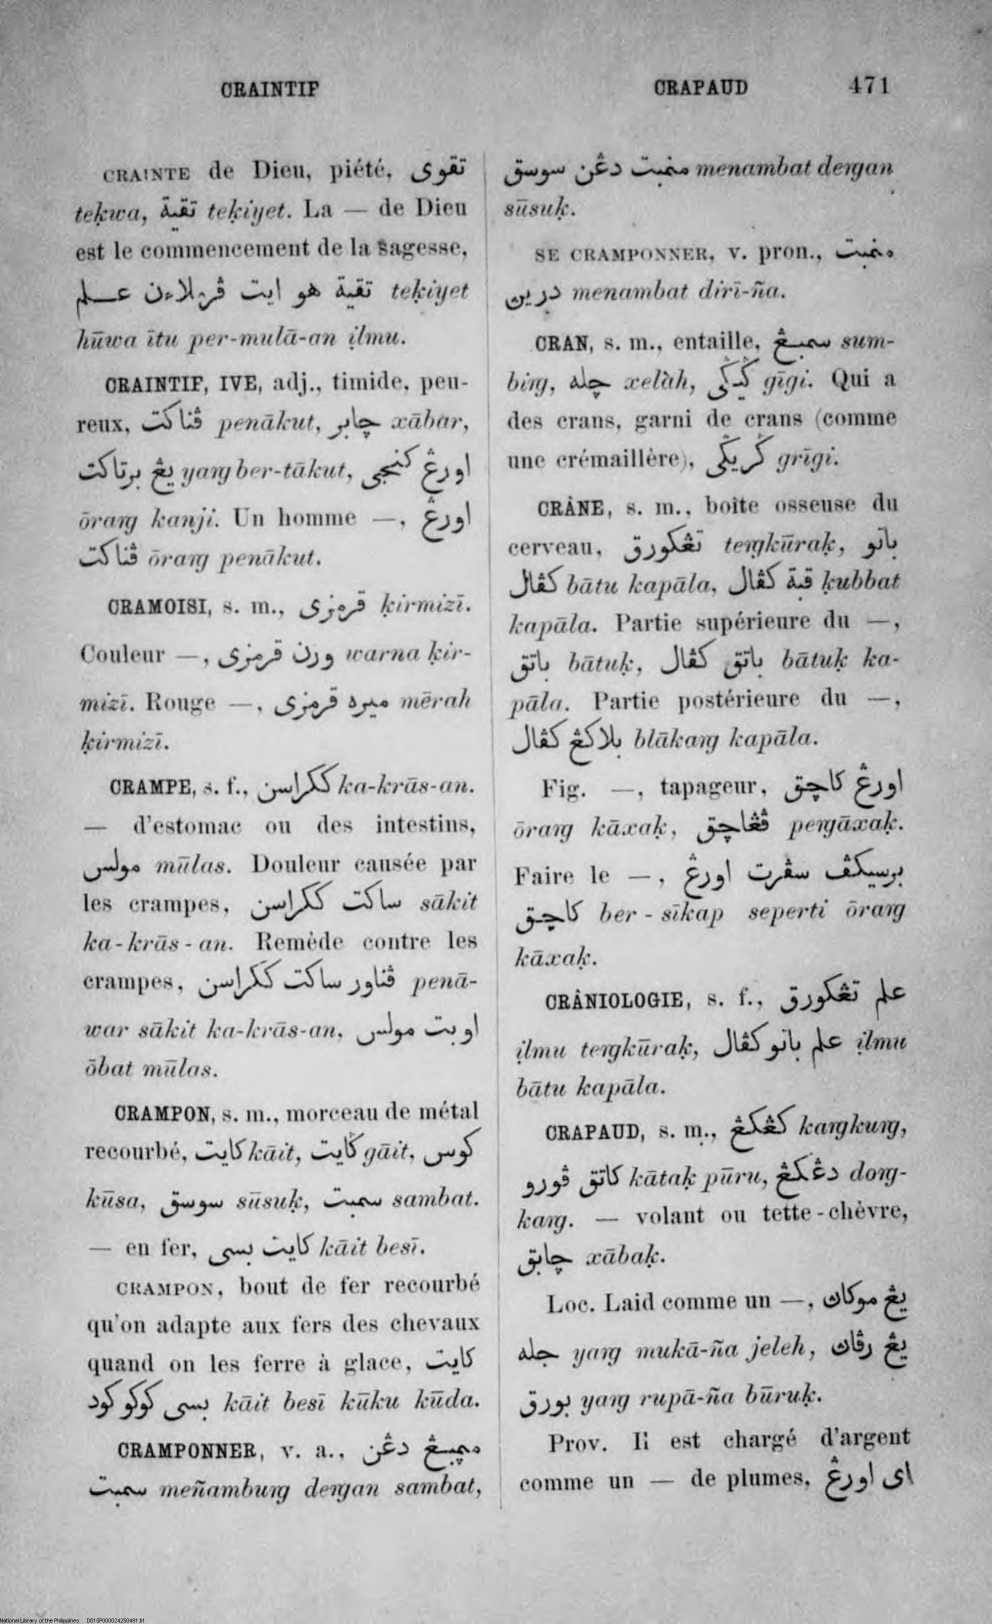 CRAINTIF
CRAPAUD
471
CRAINTE de Dieu, piété, تقوى
teḳwa, تقية teḳiyet. La — de Dieu
est le commencement de la sagesse,
تقية هو ايت ڤرملاءن علم teḳiyet
hūwa ītu per-mulā-an ịlmu.
CRAINTIF, IVE, adj., timide, peu-
reux, ڤناكت penākut, چابر xābar,
يڠ برتاكت yaŋ ber-tākut, اورڠ كنجى
ōraŋ kanji. Un homme —, اورڠ
ڤناكت ōraŋ penākut.
CRAMOISI, s. m., قرمزى ḳirmizī.
Couleur —, ورن قرمزى warna ḳir-
mizī. Rouge —, ميره قرمزى mērah
ḳirmizī.
CRAMPE, s. f., ككراسن ka-krās-an.
— d'estomac ou des intestins,
مولس mūlas. Douleur causée par
les crampes, ساكت ككراسن sākit
ka-krās-an. Remède contre les
crampes, ڤناور ساكت ككراسن penā-
war sākit ka-krās-an, اوبت مولس
ōbat mūlas.
CRAMPON, s. m., morceau de métal
recourbé, كايت kāit, ݢايت gāit, كوس
kūsa, سوسق sūsuḳ, سمبت sambat.
— en fer, كايت بسى kāit besī.
CRAMPON, bout de fer recourbé
qu'on adapte aux fers des chevaux
quand on les ferre à glace, كايت
بسى كوكو كود kāit besī kūku kūda.
CRAMPONNER, v. a., مڽمبڠ دڠن
سمبت meñambuŋ deŋan sambat,
منمبت دڠن سوسق menambat deŋan
sūsuḳ.
SE CRAMPONNER, v. pron., منمبت
درين menambat dirī-ña.
CRAN, s. m., entaille, سمبڠ sum-
biŋ, چله xelàh, ݢيݢى gīgi. Qui a
des crans, garni de crans (comme
une crémaillère), ݢريݢى grīgi.
CRÂNE, s. m., boîte osseuse du
cerveau, تڠكورق teŋkūraḳ, باتو
كڤال bātu kapāla, قبة كڤال ḳubbat
kapāla. Partie supérieure du —,
باتق bātuḳ, باتق كڤال bātuḳ ka-
pāla. Partie postérieure du —,
بلاكڠ كڤال blākaŋ kapāla.
Fig. —, tapageur, اورڠ كاچق
ōraŋ kāxaḳ, ڤڠاچق peŋāxaḳ.
Faire le —, برسيكڤ سڤرت اورڠ
كاچق ber-sīkap seperti ōraŋ
kāxaḳ.
CRÂNIOLOGIE, s. f., علم تڠكورق
ịlmu teŋkūraḳ, علم باتو كڤال ịlmu
bātu kapāla.
CRAPAUD, s. m., كڠكڠ kaŋkuŋ,
كاتق ڤورو kātaḳ pūru, دڠكڠ doŋ-
kaŋ. — volant ou tette-chèvre,
چابق xābaḳ.
Loc. Laid comme un —, يڠ موكاڽ
جله yaŋ mukā-ña jeleh, يڠ رڤاڽ
بورق yaŋ rupā-ña būruḳ.
Prov. Il est chargé d'argent
comme un — de plumes, اى اورڠ
National Library of the Philippines